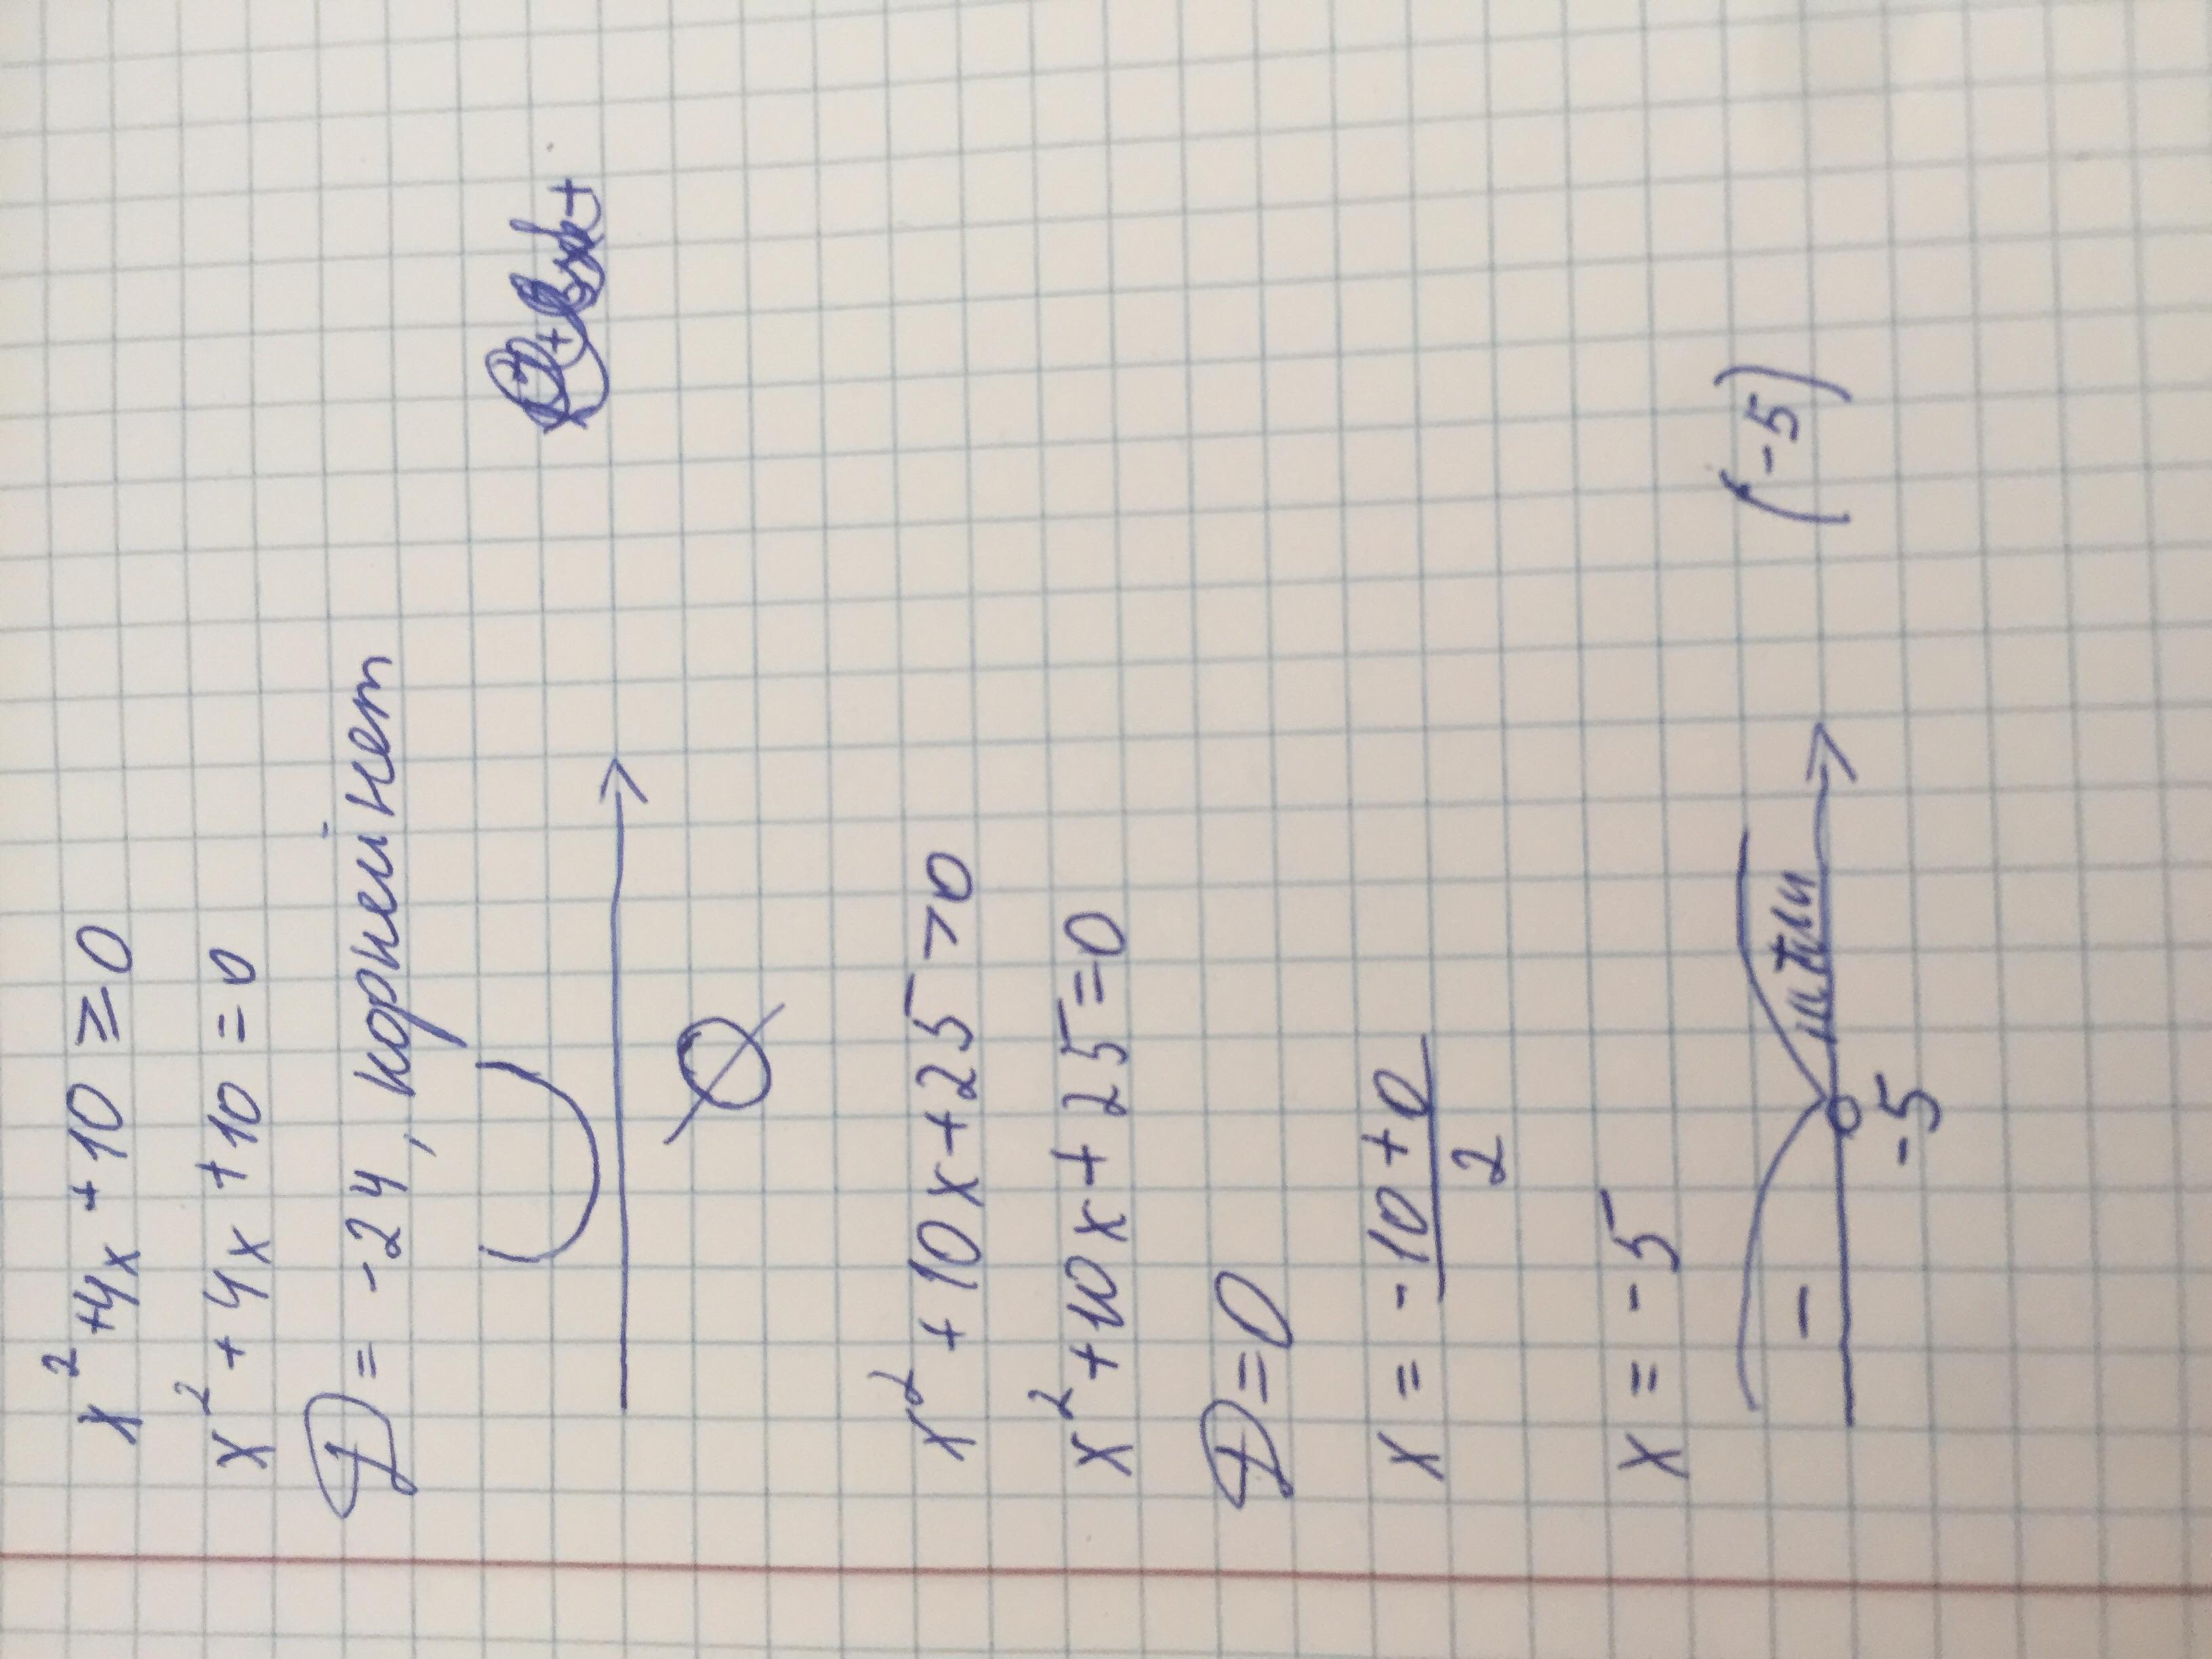 x² + 4x + 10 ≥ 0
x² + 4x + 10 = 0
D = -24, корней нет
∅
x² + 10x + 25 > 0
x² + 10x + 25 = 0
D = 0
x = -10 + 0 / 2
x = -5
- +
-5
(-5)